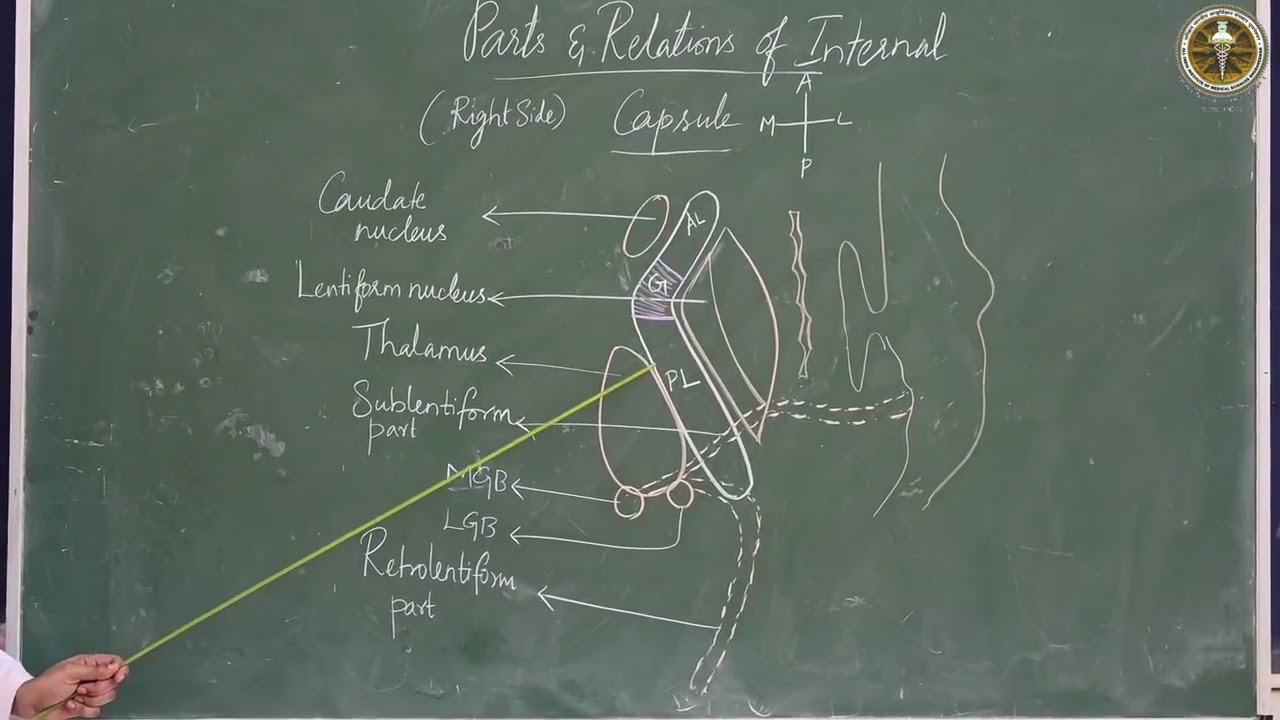 Parts & Relations of Internal
(Right Side) Capsule
A
M L
P
Caudate
nucleus
AL
Lentiform nucleus
G
Thalamus
PL
Sublentiform
part
MGB
LGB
Retrolentiform
part